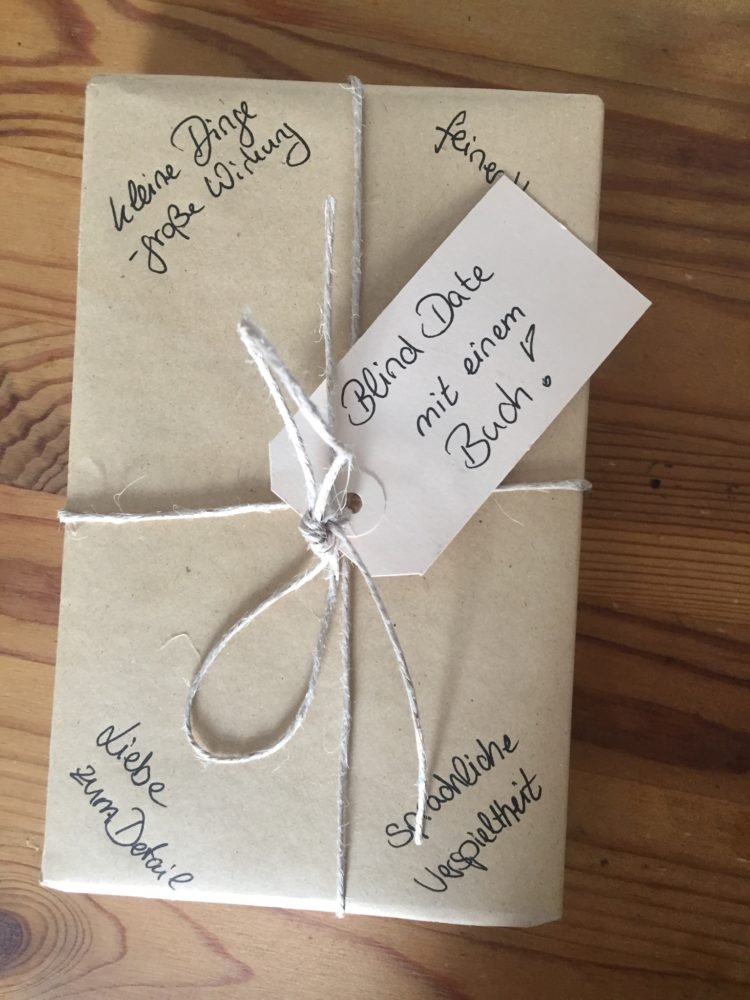 kleine Dinge
-große Wirkung
feiner
Blind Date
mit einem
Buch!
Liebe
zum Detail
Sprachliche
Verspieltheit